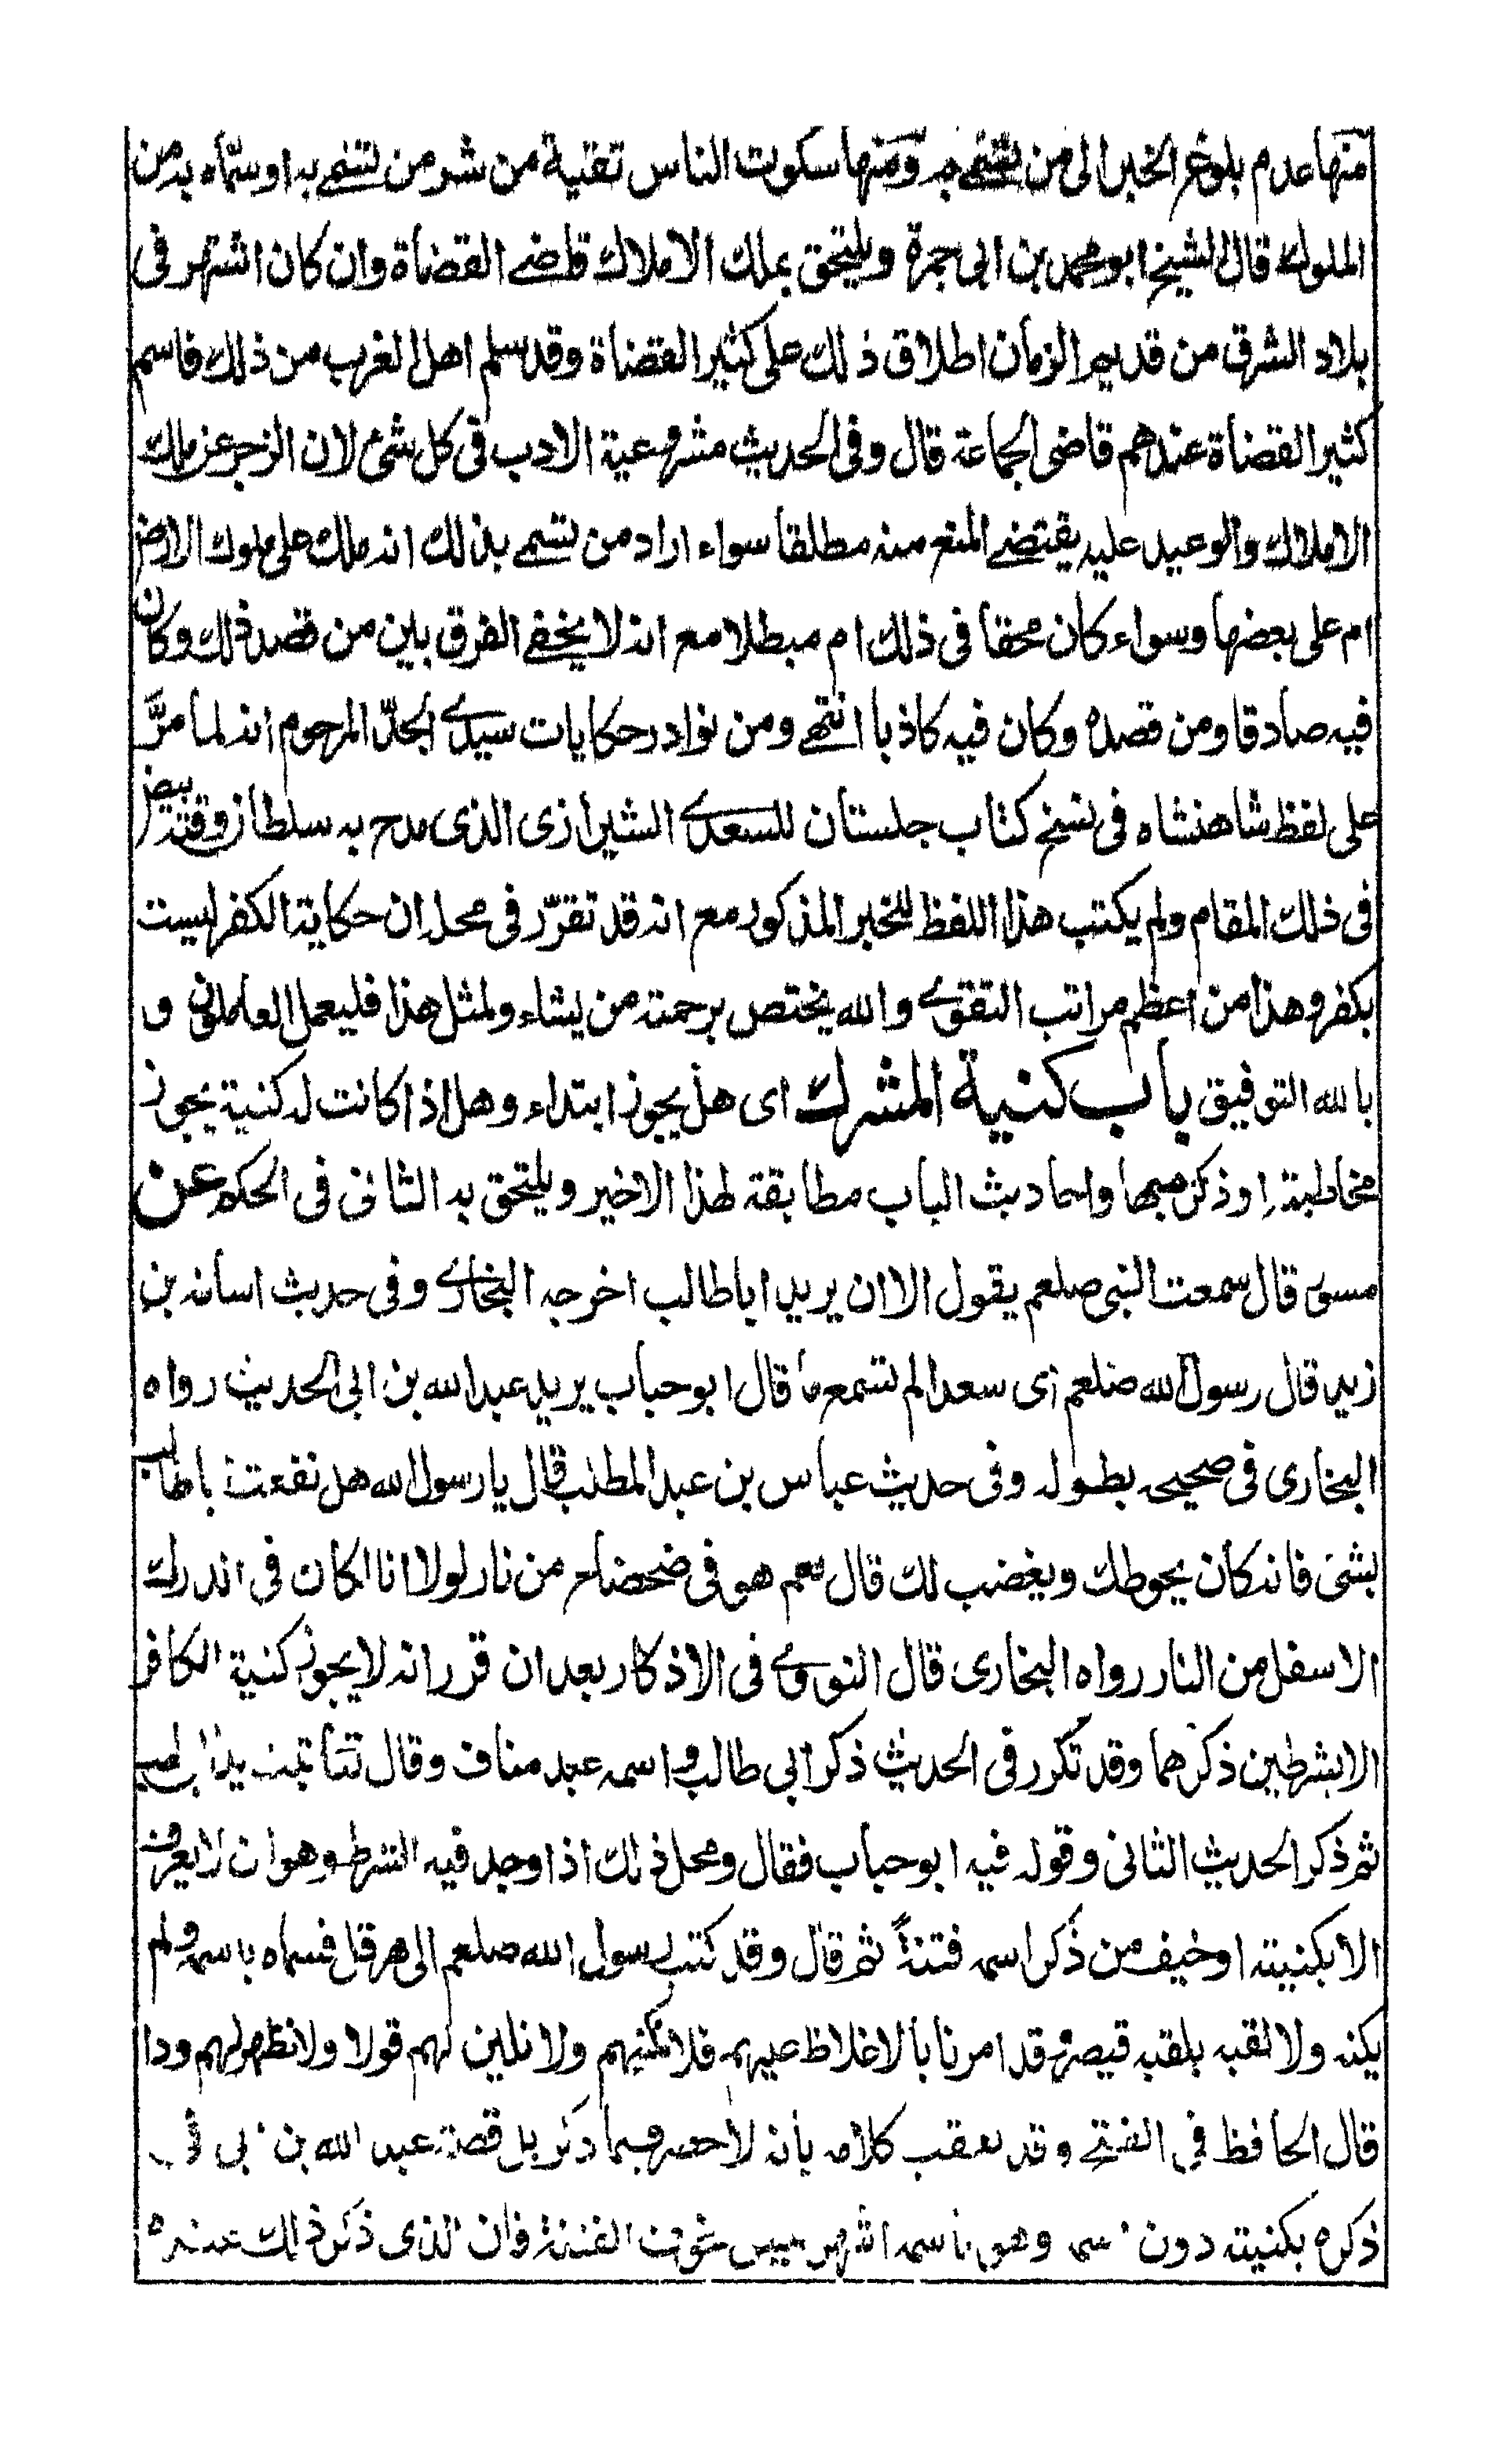 منها عدم بلوغ الخبر الى من تسمى به ومنها سكوت الناس تقية من شر من تسمى به او سماه به من
الملوك قال الشيخ ابو محمد بن ابى جمرة ويلتحق بملك الاملاك قاضى القضاة وان كان اشتهر فى
بلاد الشرق من قديم الزمان اطلاق ذلك على كثير القضاة وقد سلم اهل الغرب من ذلك فاسم
كثير القضاة عندهم قاضى الجماعة قال وفى الحديث مشروعية الادب فى كل شئ لان الزجر عن ملك
الاملاك والوعيد عليه يقتضى المنع منه مطلقا سواء اراد من تسمى بذلك انه ملك على ملوك الارض
ام على بعضها وسواء كان محقا فى ذلك ام مبطلا مع انه لا يخفى الفرق بين من قصد ذلك وكان
فيه صادقا ومن قصده وكان فيه كاذبا انتهى ومن نوادر حكايات سيدى الجد المرحوم انه لما مرَّ
على لفظ شاهنشاه فى نسخ كتاب جلستان للسعدى الشيرازى الذى مدح به سلطان وقته بيض
فى ذلك المقام ولم يكتب هذا اللفظ للخبر المذكور مع انه قد تقرّر فى محله ان حكاية الكفر ليست
بكفر وهذا من اعظم مراتب التقوى والله يختص برحمته من يشاء ولمثل هذا فليعمل العاملون و
بالله التوفيق باب كنية المشرك اى هل يجوز ابتداء وهل اذا كانت له كنية يجوز
مخاطبته او ذكره بها واحاديث الباب مطابقة لهذا الاخير ويلتحق به الثانى فى الحكم عن
مسور قال سمعت النبى صلعم يقول الا ان يريد ابا طالب اخرجه البخارى وفى حديث اسامه بن
زيد قال رسول الله صلعم اى سعد الم تسمع ما قال ابو حباب يريد عبد الله بن ابى الحديث رواه
البخارى فى صحيحه بطوله وفى حديث عباس بن عبد المطلب قال يا رسول الله هل نفعت ابا طالب
بشئ فانه كان يحوطك ويغضب لك قال نعم هو فى ضحضاح من نار لولا انا لكان فى الدرك
الاسفل من النار رواه البخارى قال النووى فى الاذكار بعد ان قرر انه لا يجوز كنية الكافر
الا بشرطين ذكرهما وقد تكرر فى الحديث ذكر ابى طالب واسمه عبد مناف وقال تتا تبت يدا ابى لهب
ثم ذكر الحديث الثانى وقوله فيه ابو حباب فقال ومحل ذلك اذا وجد فيه الشرط وهو ان لا يعرف
الا بكنيته او خيف من ذكر اسمه فتنةً ثم قال وقد كتب رسول الله صلعم الى هرقل فسماه باسمه ولم
يكنه ولا لقبه بلقبه قيصر وقد امرنا بالاغلاظ عليهم فلا نكنيهم ولا نلين لهم قولا ولا نظهر لهم ودا
قال الحافظ فى الفتح وقد تعقب كلامه بانه لا حصر فيما ذكر بل قصة عبد الله بن ابى فى
ذكره بكنيته دون اسمه وهو باسمه اشهر ليس لخوف الفتنة فان الذى ذكر ذلك عنده